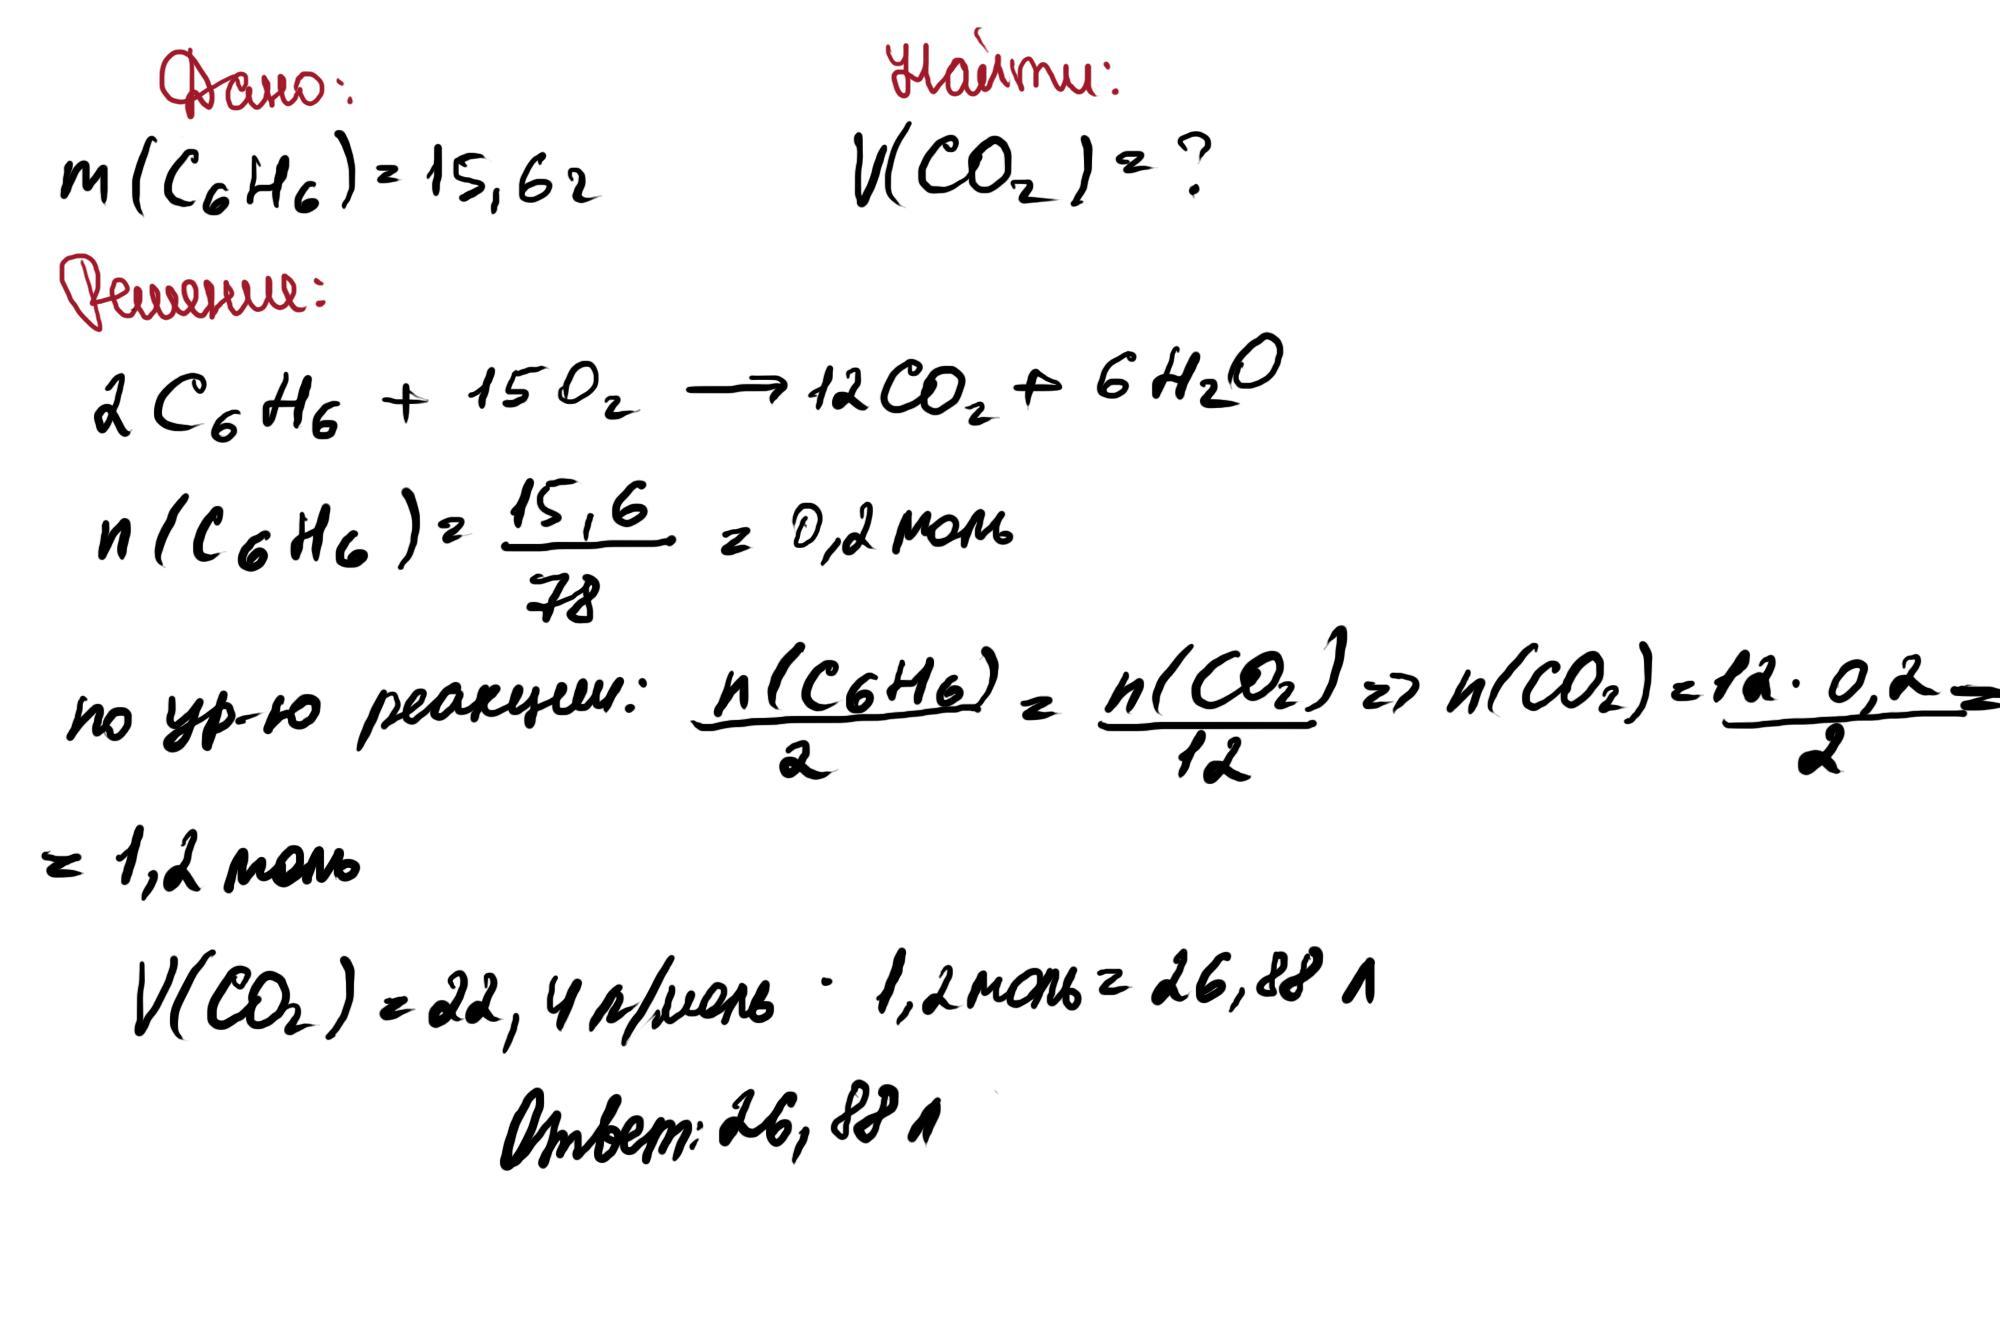 Дано: Найти:
m(C₆H₆) = 15,6г V(CO₂) = ?
Решение:
2C₆H₆ + 15O₂ → 12CO₂ + 6H₂O
n(C₆H₆) = 15,6/78 = 0,2 моль
по ур-ю реакции: n(C₆H₆)/2 = n(CO₂)/12 => n(CO₂) = 12 · 0,2/2 =
= 1,2 моль
V(CO₂) = 22,4 л/моль · 1,2 моль = 26,88 л
Ответ: 26,88 л